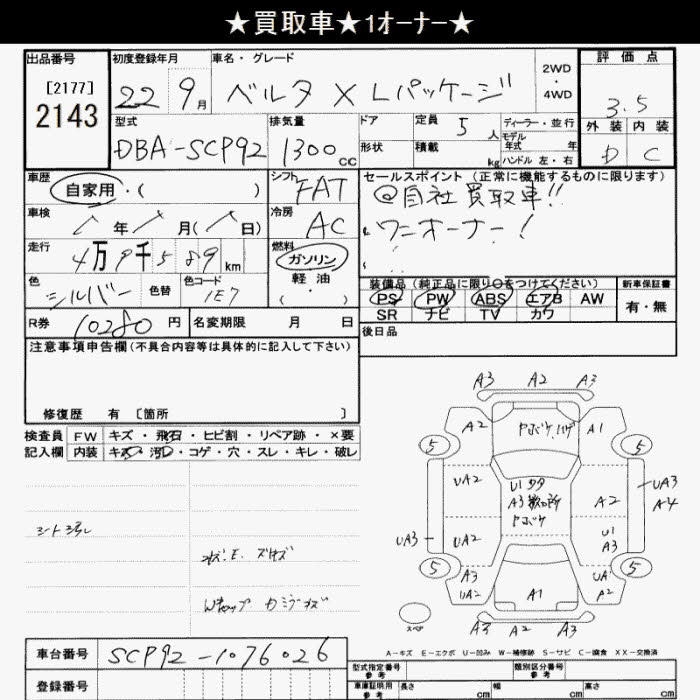 ★買取車★1オーナー★
出品番号
[2177]
2143
初度登録年月
22 9月
車名・グレード
ベルタ X Lパッケージ
2WD
・
4WD
評価点
3.5
外装 内装
D C
型式
DBA-SCP92
排気量
1300 cc
ドア
形状
定員 5人
積載 kg
ディーラー・並行
モデル
年式 年
ハンドル 左・右
車歴
自家用・( )
シフト
FAT
セールスポイント (正常に機能するものに限ります)
@自社買取車!!
ワンオーナー!
車検
年 月( 日)
冷房
AC
走行
4万9千589km
燃料
ガソリン
軽油
( )
色
シルバー
色替
色コード
1E7
装備品 (純正品に限り○をつけてください)
PS PW ABS エアB AW
SR ナビ TV カワ
新車保証書
有・無
R券 10280円
名変期限 月 日
後日品
注意事項申告欄 (不具合内容等は具体的に記入して下さい)
修復歴 有 [箇所 ]
検査員
記入欄
FW キズ・飛石・ヒビ割・リペア跡・×要
内装 キズ・汚レ・コゲ・穴・スレ・キレ・破レ
A3 A2 A3
A2 A1
5 5
UA2 A2
UA3
A4
UA3 UA2
U1
A3
5 5
A3
UA2
UA1
A2
A1
A3 A2 A3
スペア
A-キズ E-エクボ U-凹み W-補修跡 S-サビ C-腐食 XX-交換済
車台番号 SCP92-1076026
登録番号
型式指定番号
参考
類別区分番号
参考
車庫証明用
参考
長さ cm 幅 cm 高さ cm